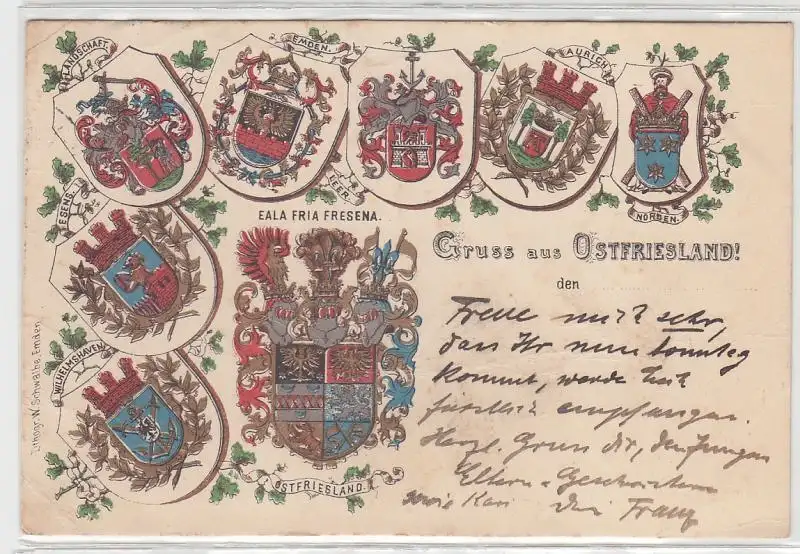 LANDSCHAFT.
EMDEN.
LEER.
AURICH.
NORDEN.
ESENS.
WILHELMSHAVEN
EALA FRIA FRESENA.
OSTFRIESLAND.
Gruss aus OSTFRIESLAND!
den
Freue mich sehr,
dass Ihr
kommt, werde Euch
fürstlich empfangen.
Herzl. Gruss Dir, den Jungen
Eltern u. Geschwistern
sowie Kari Dein Franz
Lithogr. W. Schwalbe, Emden.